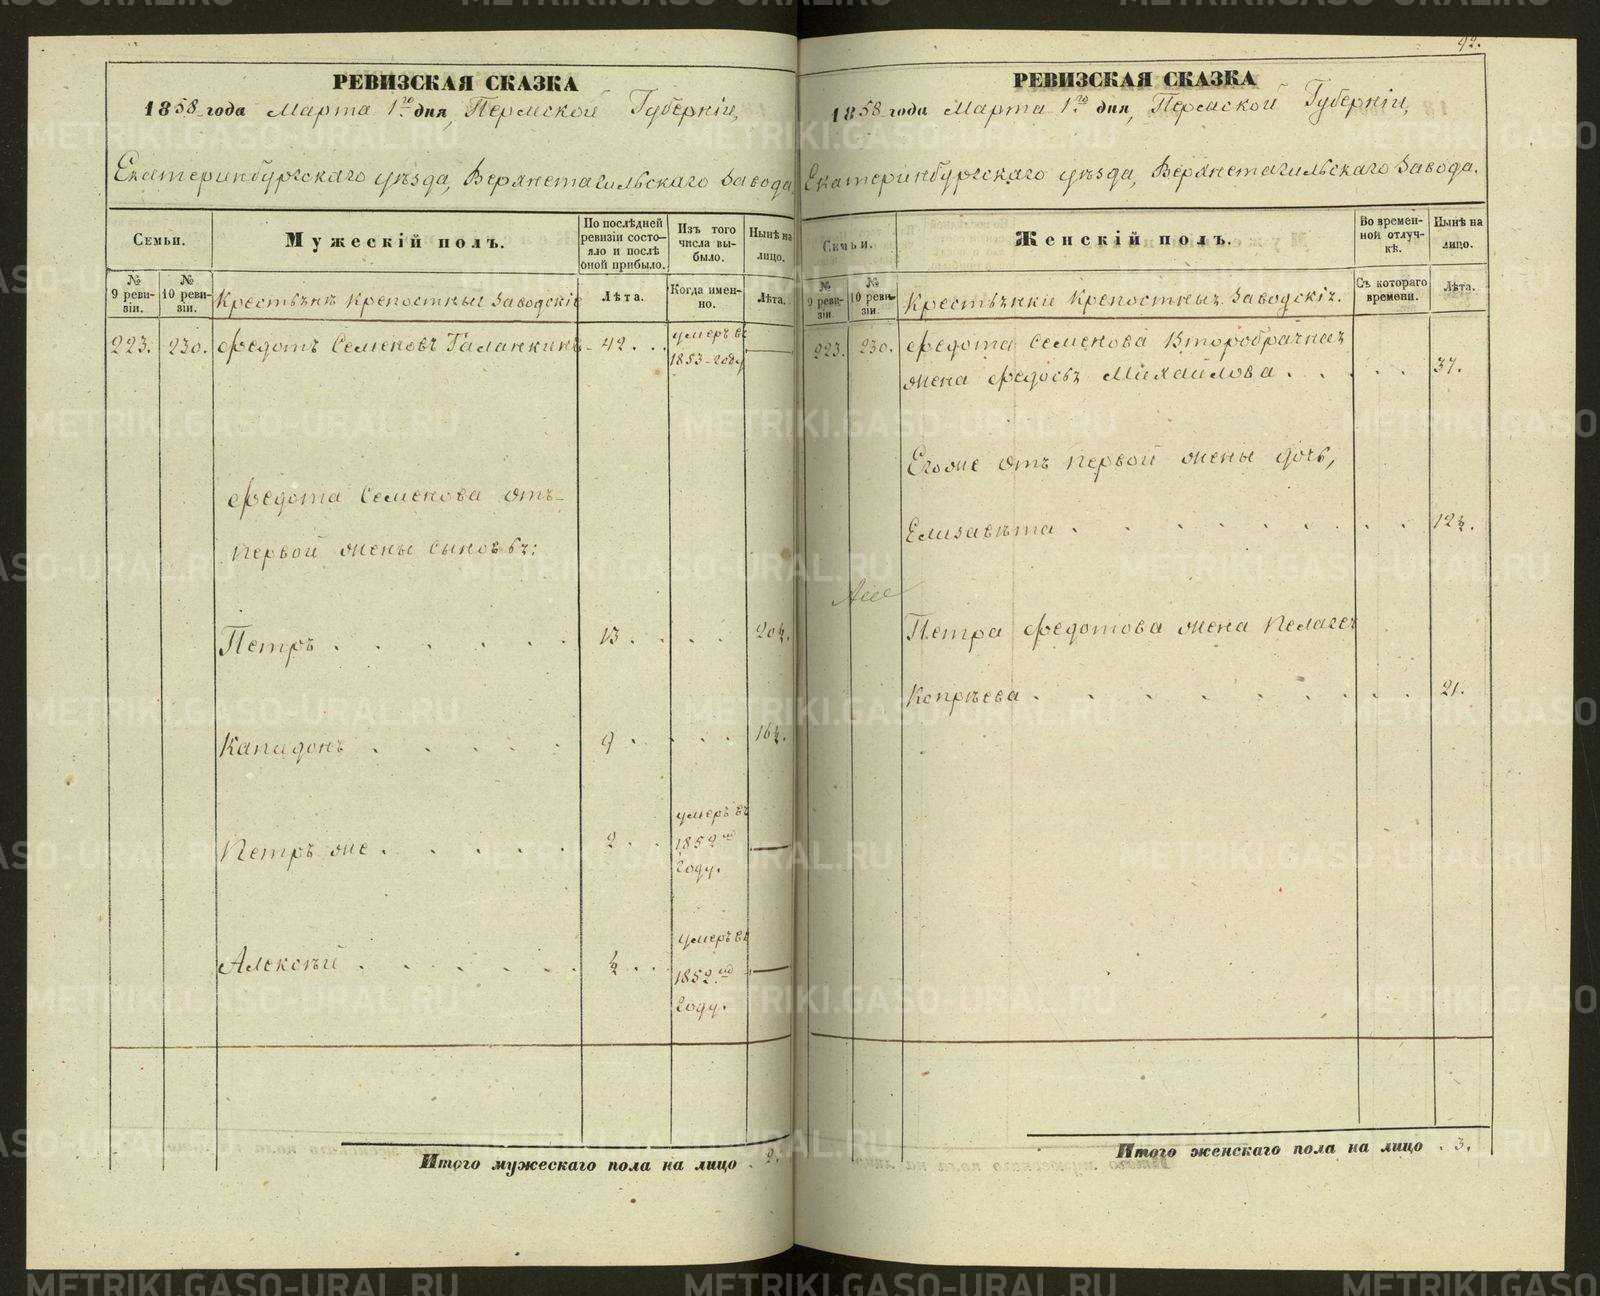 РЕВИЗСКАЯ СКАЗКА
1858 года Марта 1го дня, Пермской Губерніи,
Екатеринбургскаго уѣзда, Верхнетагильскаго Завода
Семьи.
Мужескій полъ.
По послѣдней ревизіи состояло и послѣ оной прибыло.
Изъ того числа выбыло.
Нынѣ на лицо.
№ 9 ревизіи.
№ 10 ревизіи.
Крестьяне крепостные Заводскіе
Лѣта.
Когда именно.
Лѣта.
223. 230. Ѳедотъ Семеновъ Галанкинъ 42. умеръ въ 1853 году
Ѳедота Семенова отъ
первой жены сыновья:
Петръ 13. 20½.
Капидонъ 9 16½.
Петръ же 2 умеръ въ 1852м году.
Алексѣй ½ умеръ въ 1852м году.
Итого мужескаго пола на лицо 2.
92.
РЕВИЗСКАЯ СКАЗКА
1858 года Марта 1го дня, Пермской Губерніи,
Екатеринбургскаго уѣзда, Верхнетагильскаго Завода.
Семьи.
Женскій полъ.
Во временной отлучкѣ.
Нынѣ на лицо.
№ 9 ревизіи.
№ 10 ревизіи.
Крестьянки крепостныя Заводскія.
Съ котораго времени.
Лѣта.
223. 230. Ѳедота Семенова второбрачная
жена Ѳедосья Михайлова 37.
Егоже отъ первой жены дочь,
Елизавѣта 12½.
Петра Ѳедотова жена Пелагея
Копрѣева 21.
Итого женскаго пола на лицо 3.
METRIKI.GASO-URAL.RU